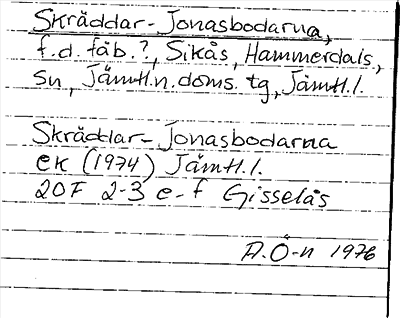 Skräddar-Jonasbodarna,
f.d. fäb.?, Sikås, Hammerdals,
sn, Jämtl.n. doms. tg, Jämtl.l.
Skräddar-Jonasbodarna
ek (1974) Jämtl.l.
20F 2-3 e-f Gisselås
A.Ö-n 1976